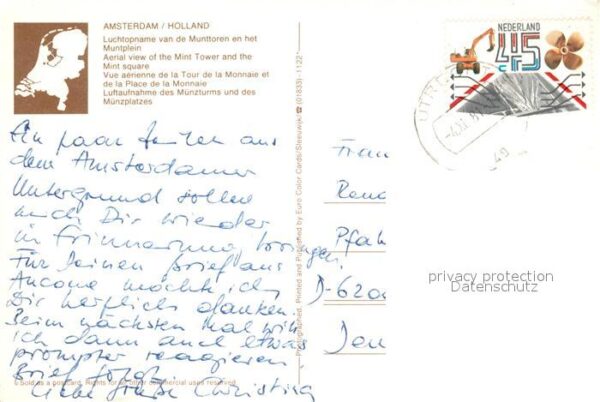 AMSTERDAM / HOLLAND
Luchtopname van de Munttoren en het
Muntplein
Aerial view of the Mint Tower and the
Mint square
Vue aérienne de la Tour de la Monnaie et
de la Place de la Monnaie
Luftaufnahme des Münzturms und des
Münzplatzes
Ein paar Zeilen aus
dem Amsterdamer
Untergrund sollen
mich Dir wieder
in Erinnerung bringen.
Für Deinen Brief aus
Ancona möchte ich
Dir herzlich danken.
Beim nächsten Mal will
ich dann auch etwas
prompter reagieren
Brief folgt
Liebe Grüße Christina
Sold as a postcard. Rights for all other commercial uses reserved
Photographed, Printed and Published by Euro Color Cards/Sleeuwijk ☎ (01833) - 1122*
NEDERLAND
45
c
UTR
Frau
Rena
Pfah
D-6200
privacy protection
Datenschutz